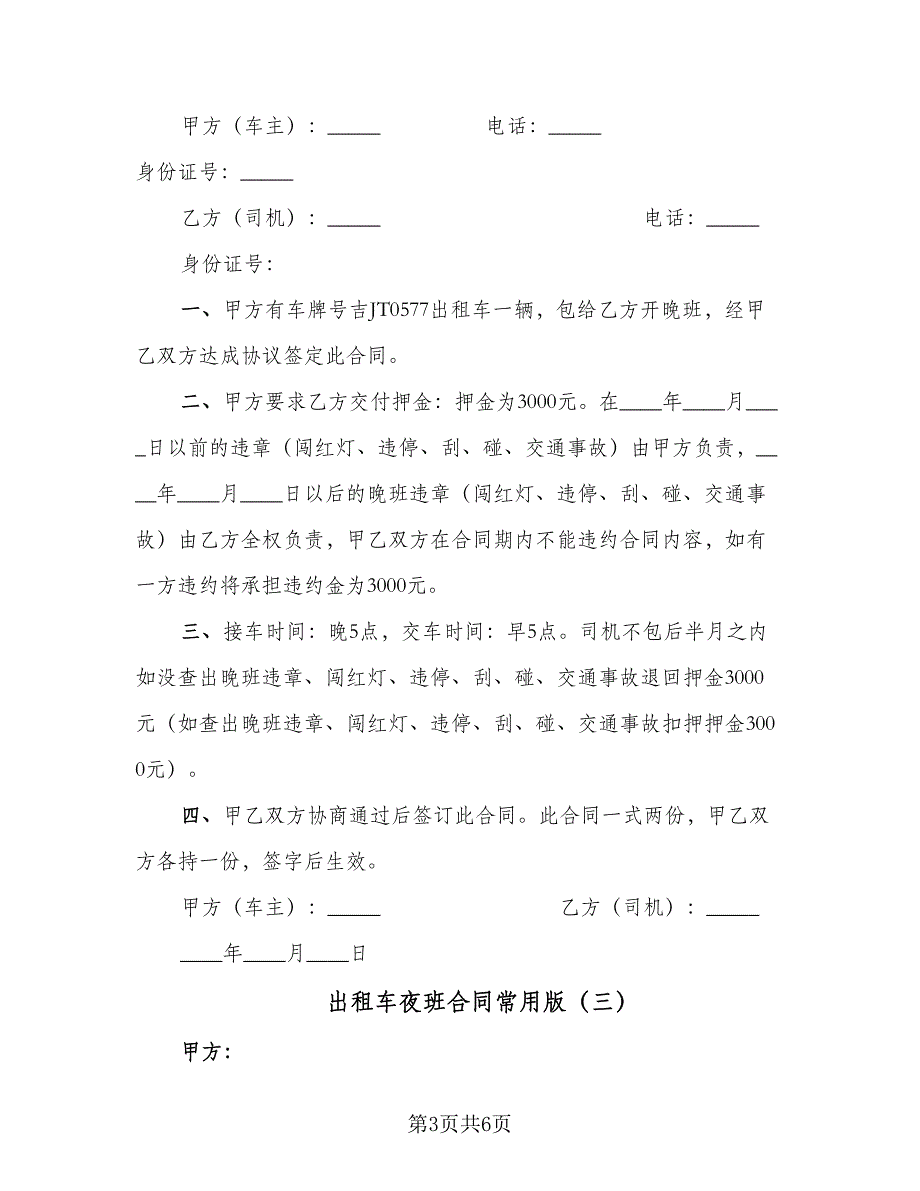 甲方（车主）：_____ 电话：_____
身份证号：_____
乙方（司机）：_____ 电话：_____
身份证号：
一、甲方有车牌号吉JT0577出租车一辆，包给乙方开晚班，经甲
乙双方达成协议签定此合同。
二、甲方要求乙方交付押金：押金为3000元。在____年____月___
_日以前的违章（闯红灯、违停、刮、碰、交通事故）由甲方负责，__
__年____月____日以后的晚班违章（闯红灯、违停、刮、碰、交通事
故）由乙方全权负责，甲乙双方在合同期内不能违约合同内容，如有
一方违约将承担违约金为3000元。
三、接车时间：晚5点，交车时间：早5点。司机不包后半月之内
如没查出晚班违章、闯红灯、违停、刮、碰、交通事故退回押金3000
元（如查出晚班违章、闯红灯、违停、刮、碰、交通事故扣押押金300
0元）。
四、甲乙双方协商通过后签订此合同。此合同一式两份，甲乙双
方各持一份，签字后生效。
甲方（车主）：_____ 乙方（司机）：_____
____年____月____日
出租车夜班合同常用版（三）
甲方：
第3页共6页